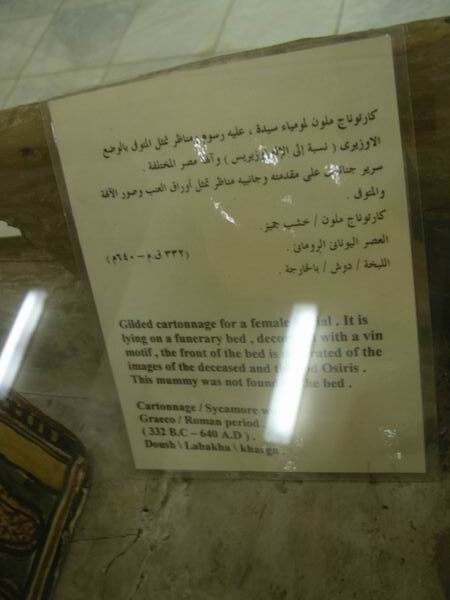 كارتوناج ملون لمومياء سيدة ، عليه رسوم مناظر تمثل المتوفى بالوضع
الاوزيرى ( نسبة إلى الإله أوزيريس ) وآلهة مصر المختلفة .
سرير جنائزى على مقدمته وجانبيه مناظر تمثل أوراق العنب وصور الآلهة
والمتوفى .
كارتوناج ملون / خشب جميز .
العصر اليونانى الرومانى .
(٣٣٢ ق.م – ٦٤٠م)
اللبخة / دوش / بالخارجة .
Gilded cartonnage for a female . It is
lying on a funerary bed , with a vin
motif , the front of the bed is of the
images of the deceased and Osiris .
This mummy was not the bed .
Cartonnage / Sycamore
Graeco / Roman period
( 332 B.C – 640 A.D ) .
Doush \ Labakha \ kharga .